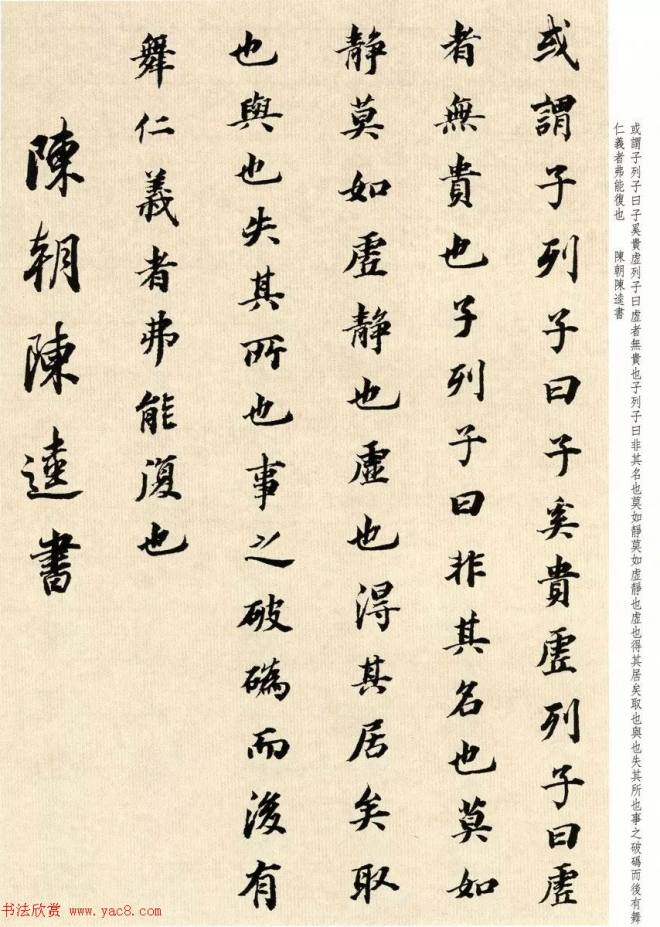 或謂子列子曰子奚貴虛列子曰虛
者無貴也子列子曰非其名也莫如
靜莫如虛靜也虛也得其居矣取
也與也失其所也事之破䃣而後有
舞仁義者弗能復也
陳朝陳逵書
或謂子列子曰子奚貴虛列子曰虛者無貴也子列子曰非其名也莫如靜莫如虛靜也虛也得其居矣取也與也失其所也事之破䃣而後有舞
仁義者弗能復也 陳朝陳逵書
书法欣赏 www.yac8.com